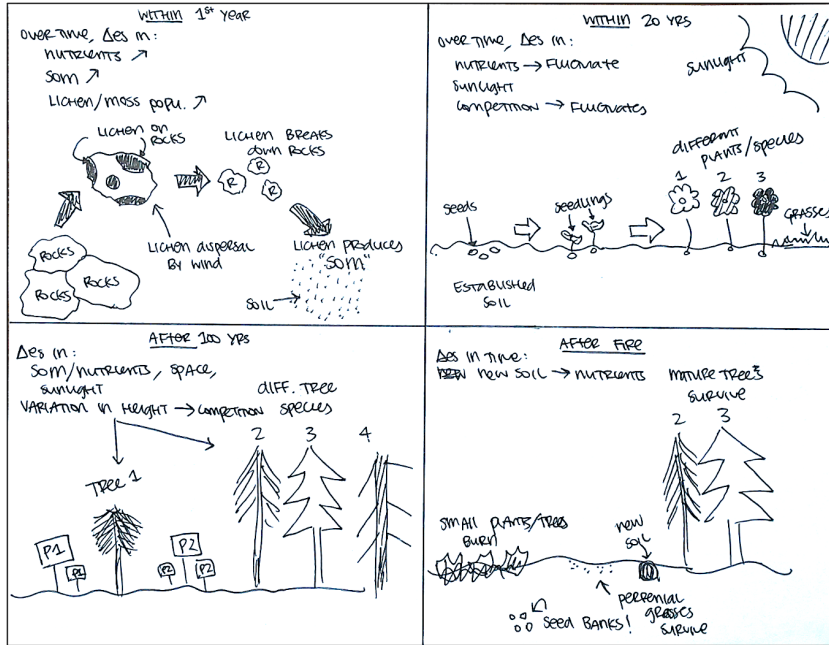 WITHIN 1ST YEAR
OVER TIME, Δes in:
NUTRIENTS ↗
SOM ↗
LICHEN/MOSS POPU. ↗
LICHEN ON
ROCKS
LICHEN BREAKS
down ROCKS
R
R
R
ROCKS
ROCKS
ROCKS
LICHEN dispersal
By wind
LICHEN PRODUCES
"SOM"
SOIL
WITHIN 20 YRS
OVER TIME, Δes in:
NUTRIENTS → FLUCTUATE
SUNLIGHT
COMPETITION → FLUCTUATES
SUNLIGHT
different
PLANTS/SPECIES
1 2 3
SEEDS
SEEDLINGS
GRASSES
ESTABLISHED
SOIL
AFTER 100 YRS
Δes in:
SOM/NUTRIENTS, SPACE,
SUNLIGHT
VARIATION in HEIGHT → COMPETITION
DIFF. TREE
SPECIES
2 3 4
TREE 1
P1
P1
P2
P2
P2
AFTER FIRE
Δes in time:
new soil → NUTRIENTS
MATURE TREES
SURVIVE
2 3
SMALL PLANTS/TREES
BURN
new
soil
SEED BANKS!
PERRENIAL
GRASSES
SURVIVE